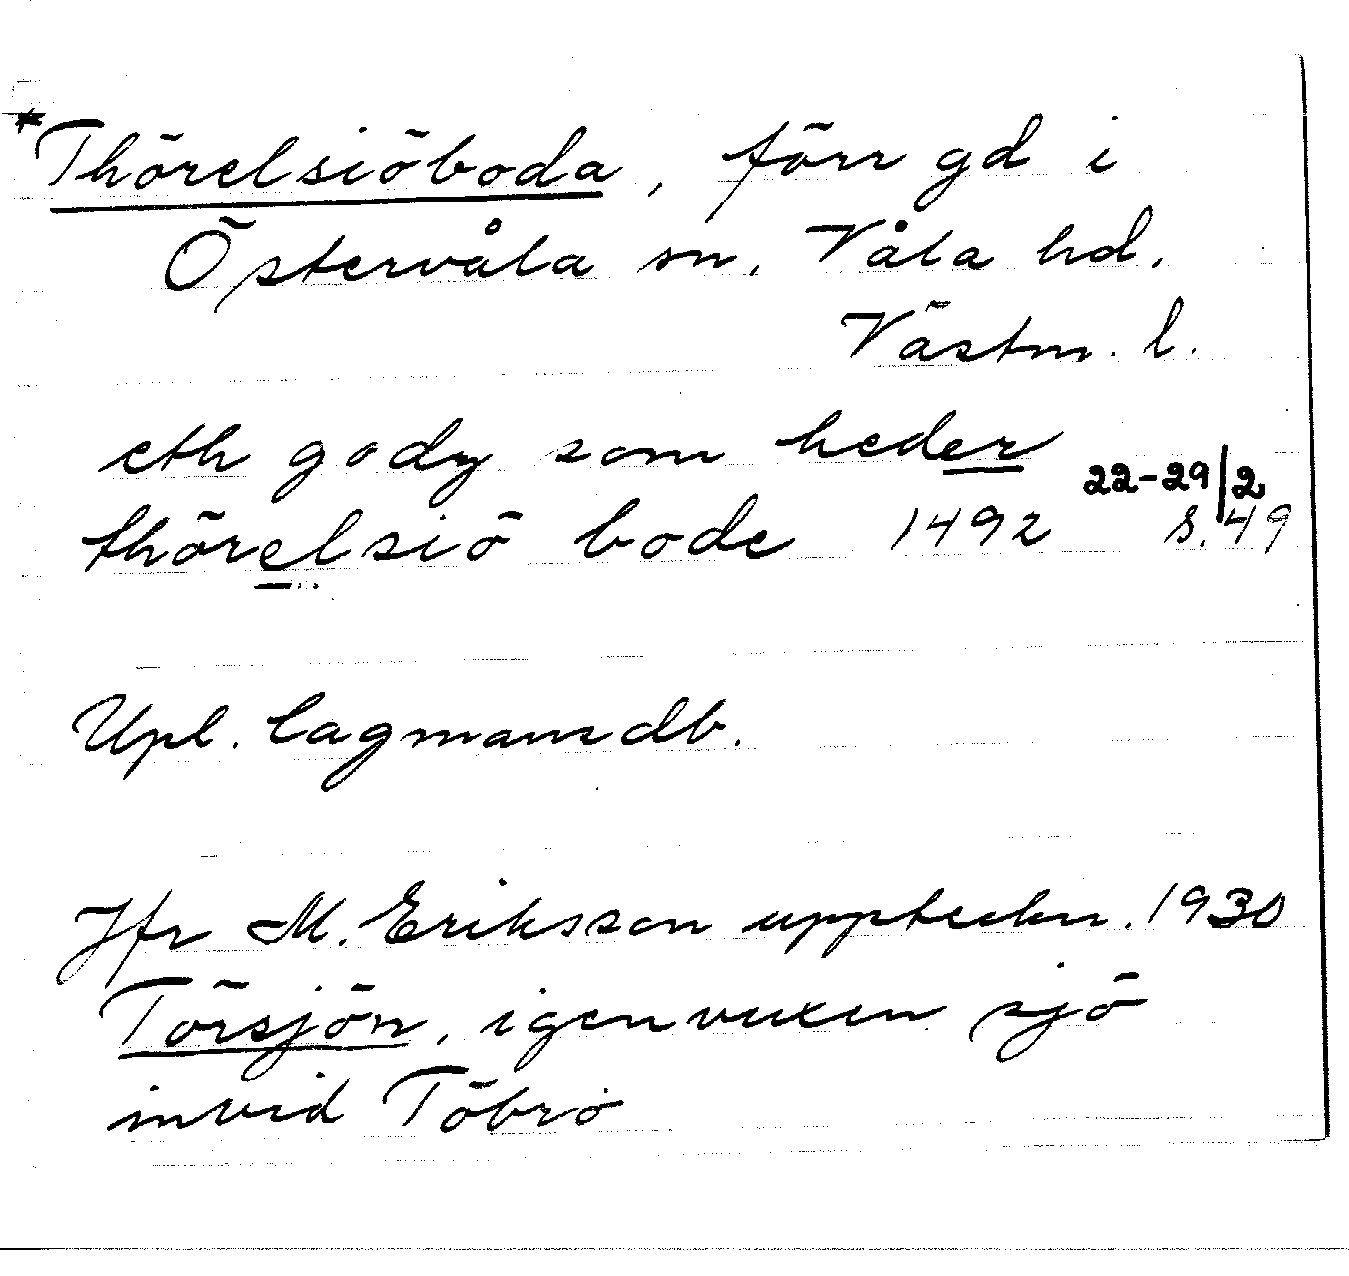 *Thörelsiöboda, förr gd i
Östervåla sn, Våla hd,
Västm. l.
eth gody som heder
22-29/2
thörelsiö bode 1492 s. 49
Upl. lagmansdb.
Jfr M. Eriksson uppteckn. 1930
Törsjön, igenvuxen sjö
invid Töbro